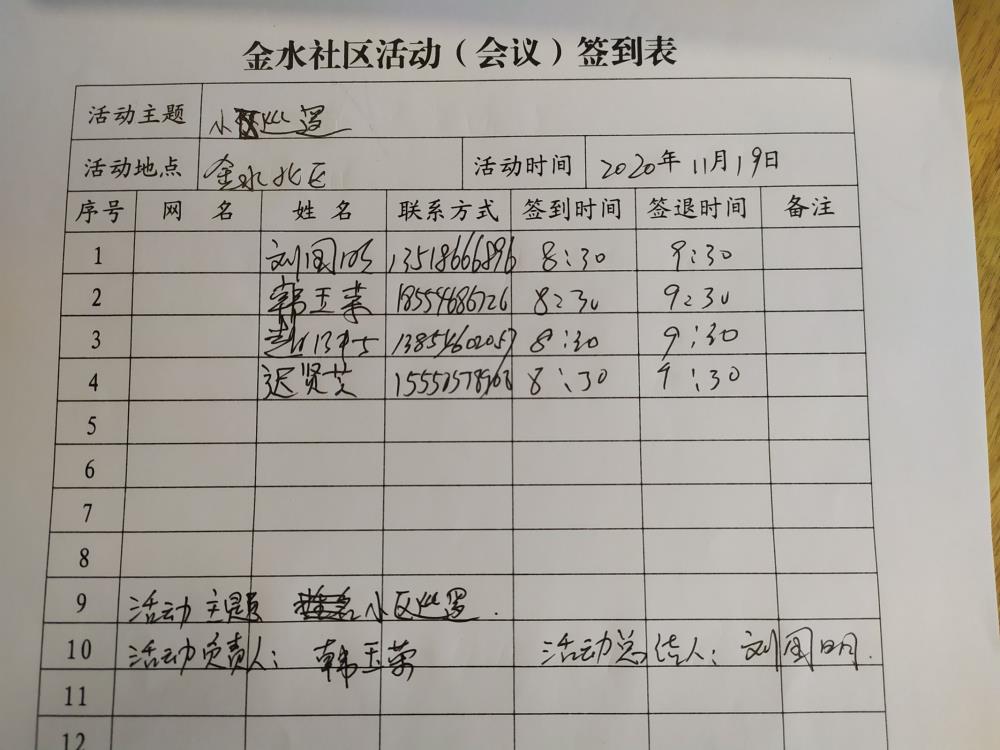 金水社区活动（会议）签到表
活动主题 小区巡逻
活动地点 金水北区 活动时间 2020年11月19日
序号 网 名 姓 名 联系方式 签到时间 签退时间 备注
1 刘国明 13518666896 8:30 9:30
2 韩玉荣 18554686726 8:30 9:30
3 13854602057 8:30 9:30
4 迟贤芝 8:30 9:30
5
6
7
8
9 活动主题 小区巡逻.
10 活动负责人: 韩玉荣 活动总结人: 刘国明.
11
12